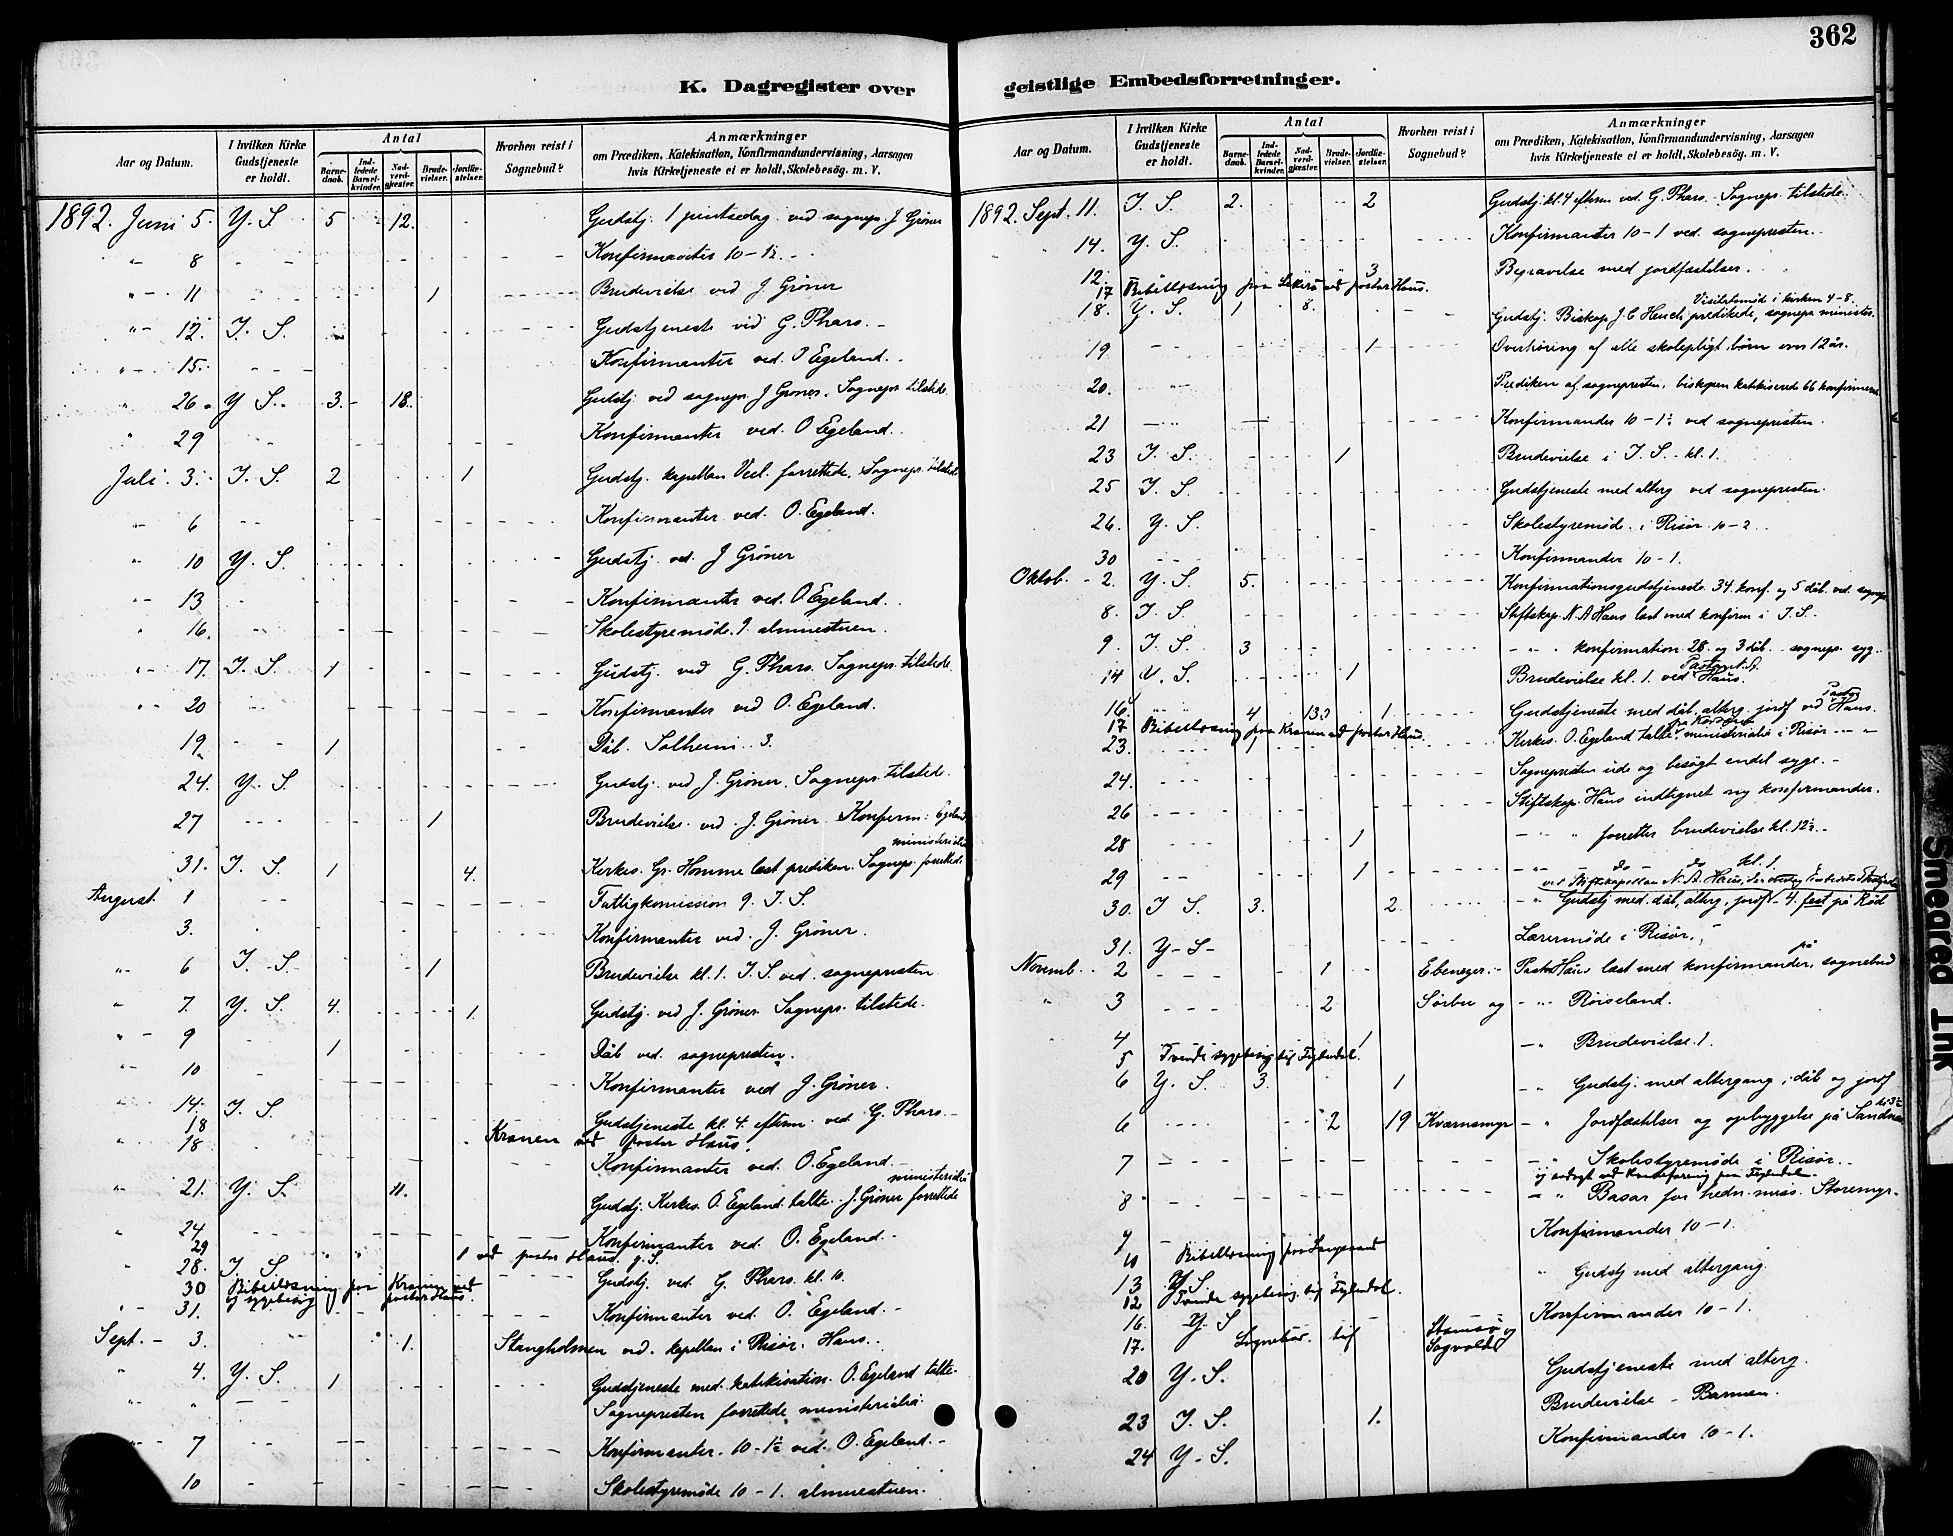 362
K. Dagregister over geistlige Embedsforretninger.
Aar og Datum. I hvilken Kirke Gudstjeneste er holdt. Antal Barne-daab. Ind-ledede Barsel-kvinder. Nad-verd-gjester. Brude-vielser. Jordfæ-stelser. Hvorhen reist i Sognebud? Anmærkninger om Prædiken, Katekisation, Konfirmandundervisning, Aarsagen hvis Kirketjeneste ei er holdt, Skolebesøg. m. V.
1892. Juni 5. Y. S 5 12. Gudstj. 1 pintsedag ved sognepr. J Grøner
" 8 Konfirmanter 10-1½
" 11 1 Brudevielse ved J Grøner
" 12. I. S. Gudstjeneste ved G. Phars.
" 15. Konfirmanter ved O Egeland.
" 26 Y S. 3. 18. Gudstj. ved sognepr J Grøner. Sognepr. tilstede
" 29 Konfirmanter ved. O Egeland.
Juli 3. I. S. 2 1 Gudstj. kapellan Veel forrettede. Sognepr. tilstede
" 6 Konfirmanter ved. O. Egeland.
" 10 Y. S. Gudstj. ved J Grøner
" 13 Konfirmanter ved. O Egeland.
" 16. Skolestyremøde. 9. almuestuen.
" 17. I. S. 1 Gudstj. ved G. Phars. Sognepr. tilstede
" 20 Konfirmanter ved O. Egeland.
19 1 Dåb. Solheim 3.
24. Y. S. Gudstj. ved J. Grøner. Sognepr. tilstede.
27 1 Brudevielse ved J. Grøner. Konfirm: Egeland
31. I. S. 1 4. Kirkes. Gr. Homme læst prediken. Sognepr. forrettede ministerialia
August 1 Fattigkomission 9. I. S.
3. Konfirmanter ved. J. Grøner.
" 6 I. S. 1 Brudevielse kl. 1. I. S. ved. sognepresten
" 7. Y. S. 4. 1. Gudstj. ved J. Grøner Sognepr. tilstede.
" 9 1 Dåb ved. sognepresten.
" 10 Konfirmanter ved J. Grøner.
" 14. I. S Gudstjeneste kl. 4. efterm. ved G. Phars.
18 Kranen ved pastor Haus.
" 18 Konfirmanter ved. O. Egeland
" 21. Y. S. 11. Gudstj. Kirkes. O. Egeland talte. J. Grøner forrettede ministerialia
" 24 Konfirmanter ved. O. Egeland.
29 1 ved pastor Haus. J. S.
" 28. I S Gudstj. ved G. Phars. kl. 10.
30 Bibellæsning paa Kranen ved pastor Haus.
og sygebesøg
" 31. Konfirmanter ved O. Egeland.
Sept. 3. 1. Stangholmen ved. kapellan i Risør. Haus.
" 4. Y. S. 1 Gudstjeneste med. katekisation. O. Egeland talte.
" " Sognepresten forrettede ministerialia.
7 Konfirmanter. 10-1½ ved. O. Egeland.
10 Skolestyremøde 10-1. almuestuen.
Aar og Datum. I hvilken Kirke Gudstjeneste er holdt. Antal Barne-daab. Ind-ledede Barsel-kvinder. Nad-verd-gjester. Brude-vielser. Jordfæ-stelser. Hvorhen reist i Sognebud? Anmærkninger om Prædiken, Katekisation, Konfirmandundervisning, Aarsagen hvis Kirketjeneste ei er holdt, Skolebesøg. m. V.
1892. Sept. 11. I. S. 2. 2 Gudstj. kl. 4 efterm ved G. Phars. Sognepr. tilstede.
" 14. Y. S. Konfirmanter 10-1 ved. sognepresten.
12. 3 Begravelse med jordfæstelser.
17 Bibellæsning paa ved pastor Haus.
18. Y. S. 1 8. Gudstj. Biskop J. C Heuch predikede, sognepr. minister. Visitatsmøde i kirken 4-8.
19 1 Overhøring af alle skolepligt. børn over 12 år.
20. Prediken af sognepresten, biskopen katekiserede 66 konfirmerede
21 Konfirmander 10-1½ ved sognepresten.
23 I. S. 1 Brudevielse i I. S. kl. 1.
25 I. S. Gudstjeneste med alterg ved sognepresten.
26. Y. S. Skolestyremøde. i Risør. 10-2
30 Konfirmander 10-1.
Oktob. 2. Y. S. 5. Konfirmationsgudstjeneste. 34 konf. og 5 dåb. ved. sognepr
8. I. S Stiftskap. N. A Haus læst med konfirm i I. S.
9. I. S. 3 " konfirmation 28. og 3 dåb. sognepr. syg.
14 Y. S. 1 Brudevielse kl. 1. ved Haus.
16. " " 4 13 1 Gudstjeneste med dåb, alterg. jordf. ved Pastor Haus.
17 Bibellæsning paa Kranen ved pastor Haus.
23. Kirkes. O. Egeland talte, ministerialia i Risør
24. Sognepresten ude og besøgt endel syge.
26 Stiftskap. Haus indtegnet ny konfirmander.
28 1 " forretter brudevielse kl. 12½.
29 1 " do do kl. 1.
ved Stiftskapellan N. A. Haus,
30. I S. 3. 2. " Gudstj med. dåb, alterg, jordf. - 4. fest på Rød
31. Y. S Lærermøde i Risør.
Novemb. 2 1 Ebenezer. Pastor Haus læst med konfirmander, på sognebud
" 3 2 Sørbu og " Røiseland.
4 1 " Brudevielse. 1.
5 Tvende sygebesøg
6 Y. S. 3. 1 " Gudstj. med altergang, dåb og jordf
6 2 19 Kværnsmyr " Jordfæstelser og opbyggelse på Sandnes
7 " Skolestyremøde i Risør.
8 " Basar for hedn. miss. Storemyr.
9 Konfirmander 10-1.
10 Bibellæsning paa
13 Y S " Gudstj med altergang.
12 Tvende sygebesøg
16. Y. S Konfirmander 10-1.
17. Sognebud. og
20 Y. S. Gudstjeneste med alterg.
23 I. S. 1. Brudevielse - Barmen.
24 Y. S. Konfirmander 10-1.
Smeared Ink